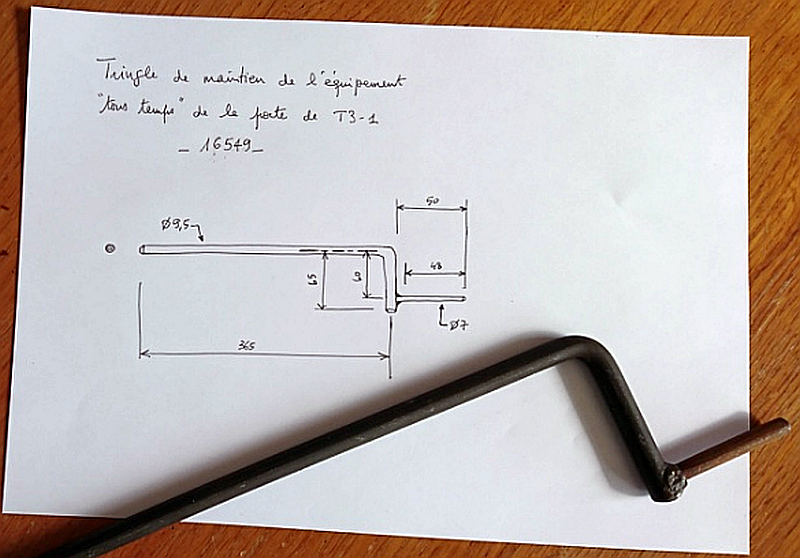 Tringle de maintien de l'équipement
"tous temps" de la porte de T3-1
_ 16549_
50
Ø9,5
48
65
Ø7
365